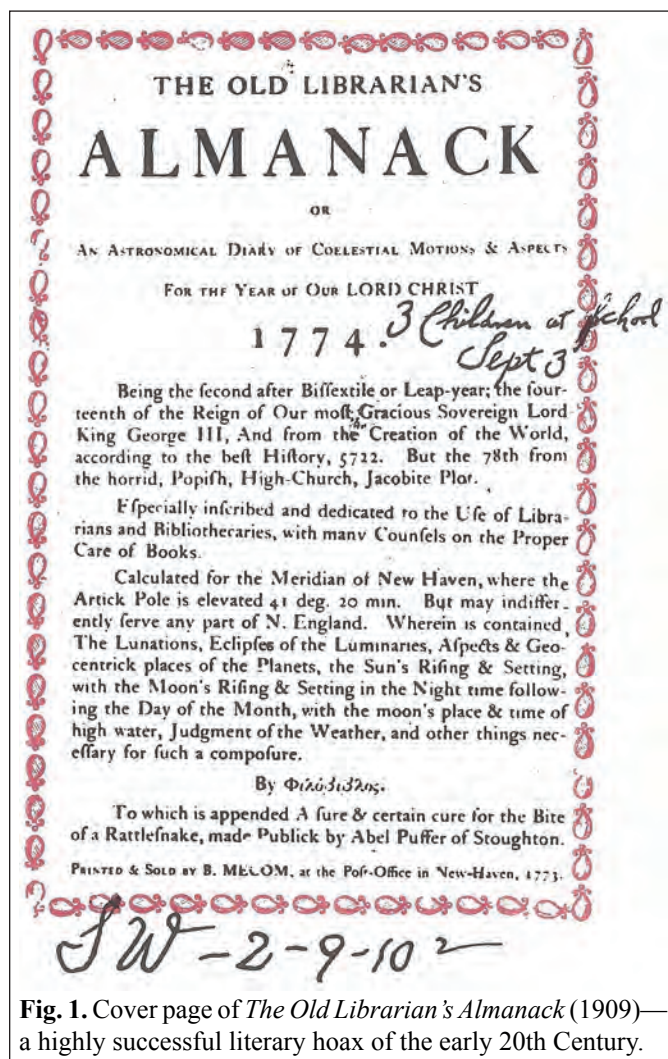 THE OLD LIBRARIAN'S
ALMANACK
OR
AN ASTRONOMICAL DIARY OF COELESTIAL MOTIONS & ASPECTS
FOR THE YEAR OF OUR LORD CHRIST
1774.
3 Children at School
Sept 3
Being the ſecond after Biſſextile or Leap-year; the four-
teenth of the Reign of Our moſt Gracious Sovereign Lord
King George III, And from the Creation of the World,
according to the beſt Hiſtory, 5722. But the 78th from
the horrid, Popiſh, High-Church, Jacobite Plot.
Eſpecially inſcribed and dedicated to the Uſe of Libra-
rians and Bibliothecaries, with many Counſels on the Proper
Care of Books.
Calculated for the Meridian of New Haven, where the
Artick Pole is elevated 41 deg. 20 min. But may indiffer-
ently ſerve any part of N. England. Wherein is contained
The Lunations, Eclipſes of the Luminaries, Aſpects & Geo-
centrick places of the Planets, the Sun's Riſing & Setting,
with the Moon's Riſing & Setting in the Night time follow-
ing the Day of the Month, with the moon's place & time of
high water, Judgment of the Weather, and other things nec-
eſſary for ſuch a compoſure.
By Φιλόβιβλος.
To which is appended A ſure & certain cure for the Bite
of a Rattleſnake, made Publick by Abel Puffer of Stoughton.
PRINTED & SOLD BY B. MECOM, at the Poſt-Office in New-Haven, 1773.
SW-2-9-10
Fig. 1. Cover page of The Old Librarian's Almanack (1909)—
a highly successful literary hoax of the early 20th Century.